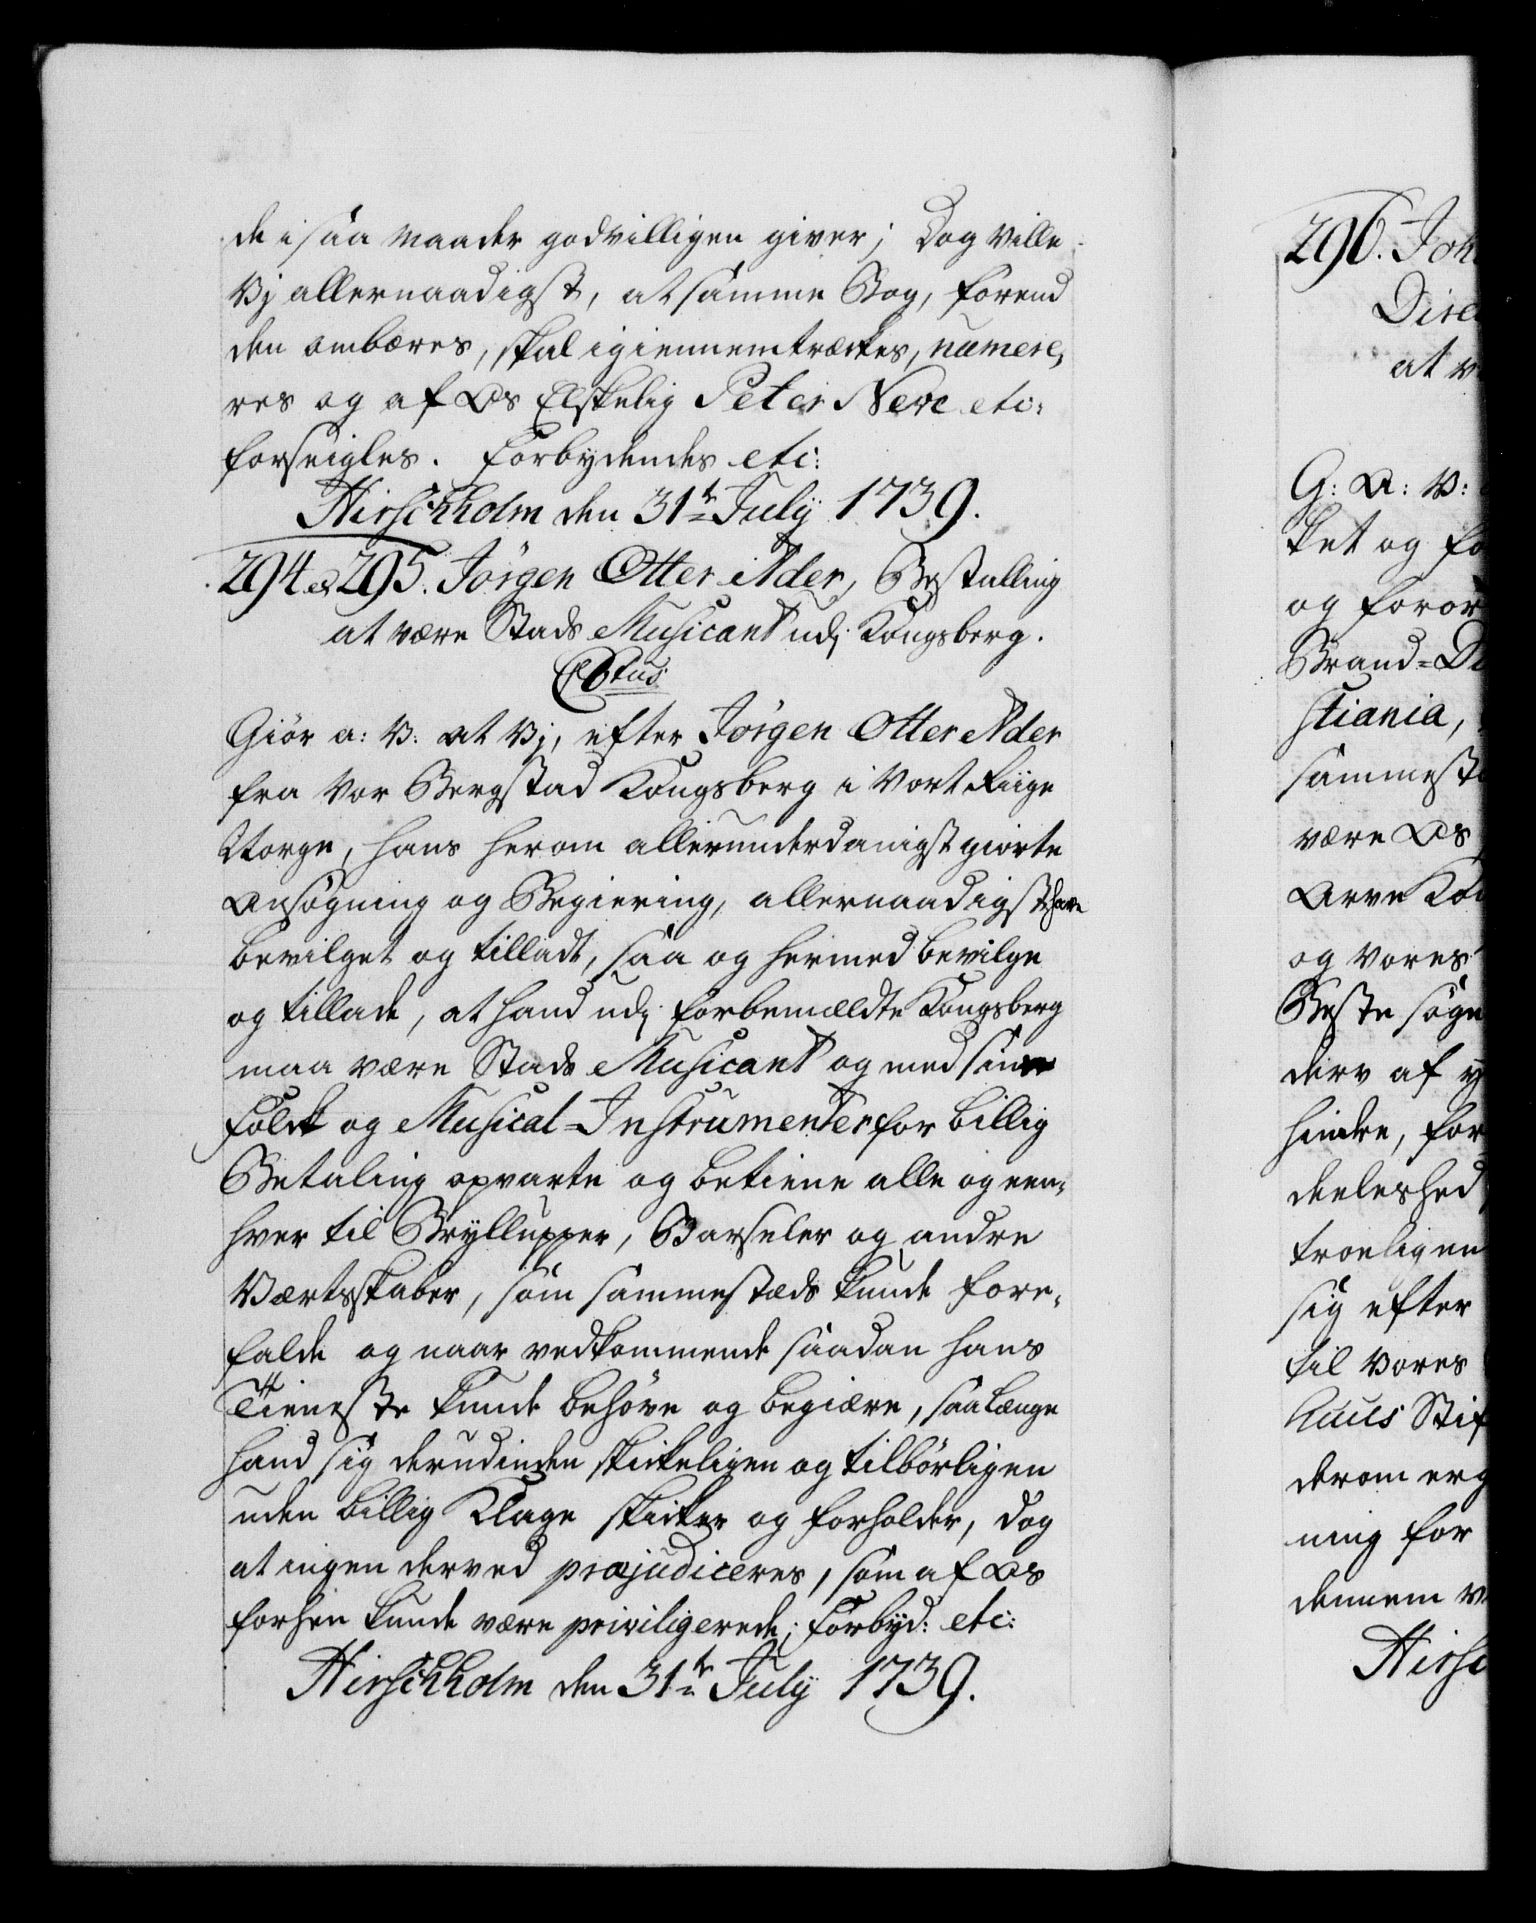 de i saa maader godvilligen giver; Dog ville
Vj allernaadigst, at samme Bog, forend
den ombæres, skal igiennemtrækes, numere,
res og af Os Elskelig Peter Neve etc:
forseigles. Forbydendes etc:
Hirschholm den 31te July 1739.
294 & 295. Jörgen Otter Ader, Bestalling
at være Stads Musicant udj Kongsberg.
C6tus:
Giör a: V: at Vj, efter Jörgen Otter Ader
fra Vor Bergstad Kongsberg i Vort Riige
Norge, hans herom allerunderdanigst giorte
Ansögning og Begiering, allernaadigst have
bevilget og tilladt, saa og hermed bevilge
og tillade, at hand udj forbemældte Kongsberg
maa være Stads Musicant og med sine
Folck og Musical-Instrumenter for billig
Betaling opvarte og betiene alle og een,
hver til Bryllupper, Barseler og andre
Værtsskaber, som sammestæds kunde fore,
falde og naar vedkommende saadan hans
Tieneste kunde behöve og begiære, saalænge
hand sig derudinden skikkeligen og tilbörligen
uden billig Klage skikker og forholder, dog
at ingen derved præjudiceres, som af Os
forhen kunde være priviligerede; Forbyd: etc:
Hirschholm den 31te July 1739.
296. Joh
Dire
at v
G: A: V:
ket og fo
og foror
Brand-Di
stiania,
sammeste
være Os
Arve Kon
og vores
Beste söge
derv af y
hindre, for
deeleshed
troeligen
sig efter
til vores
huus Stif
derom erg
ning for
dennem v
Hirsc